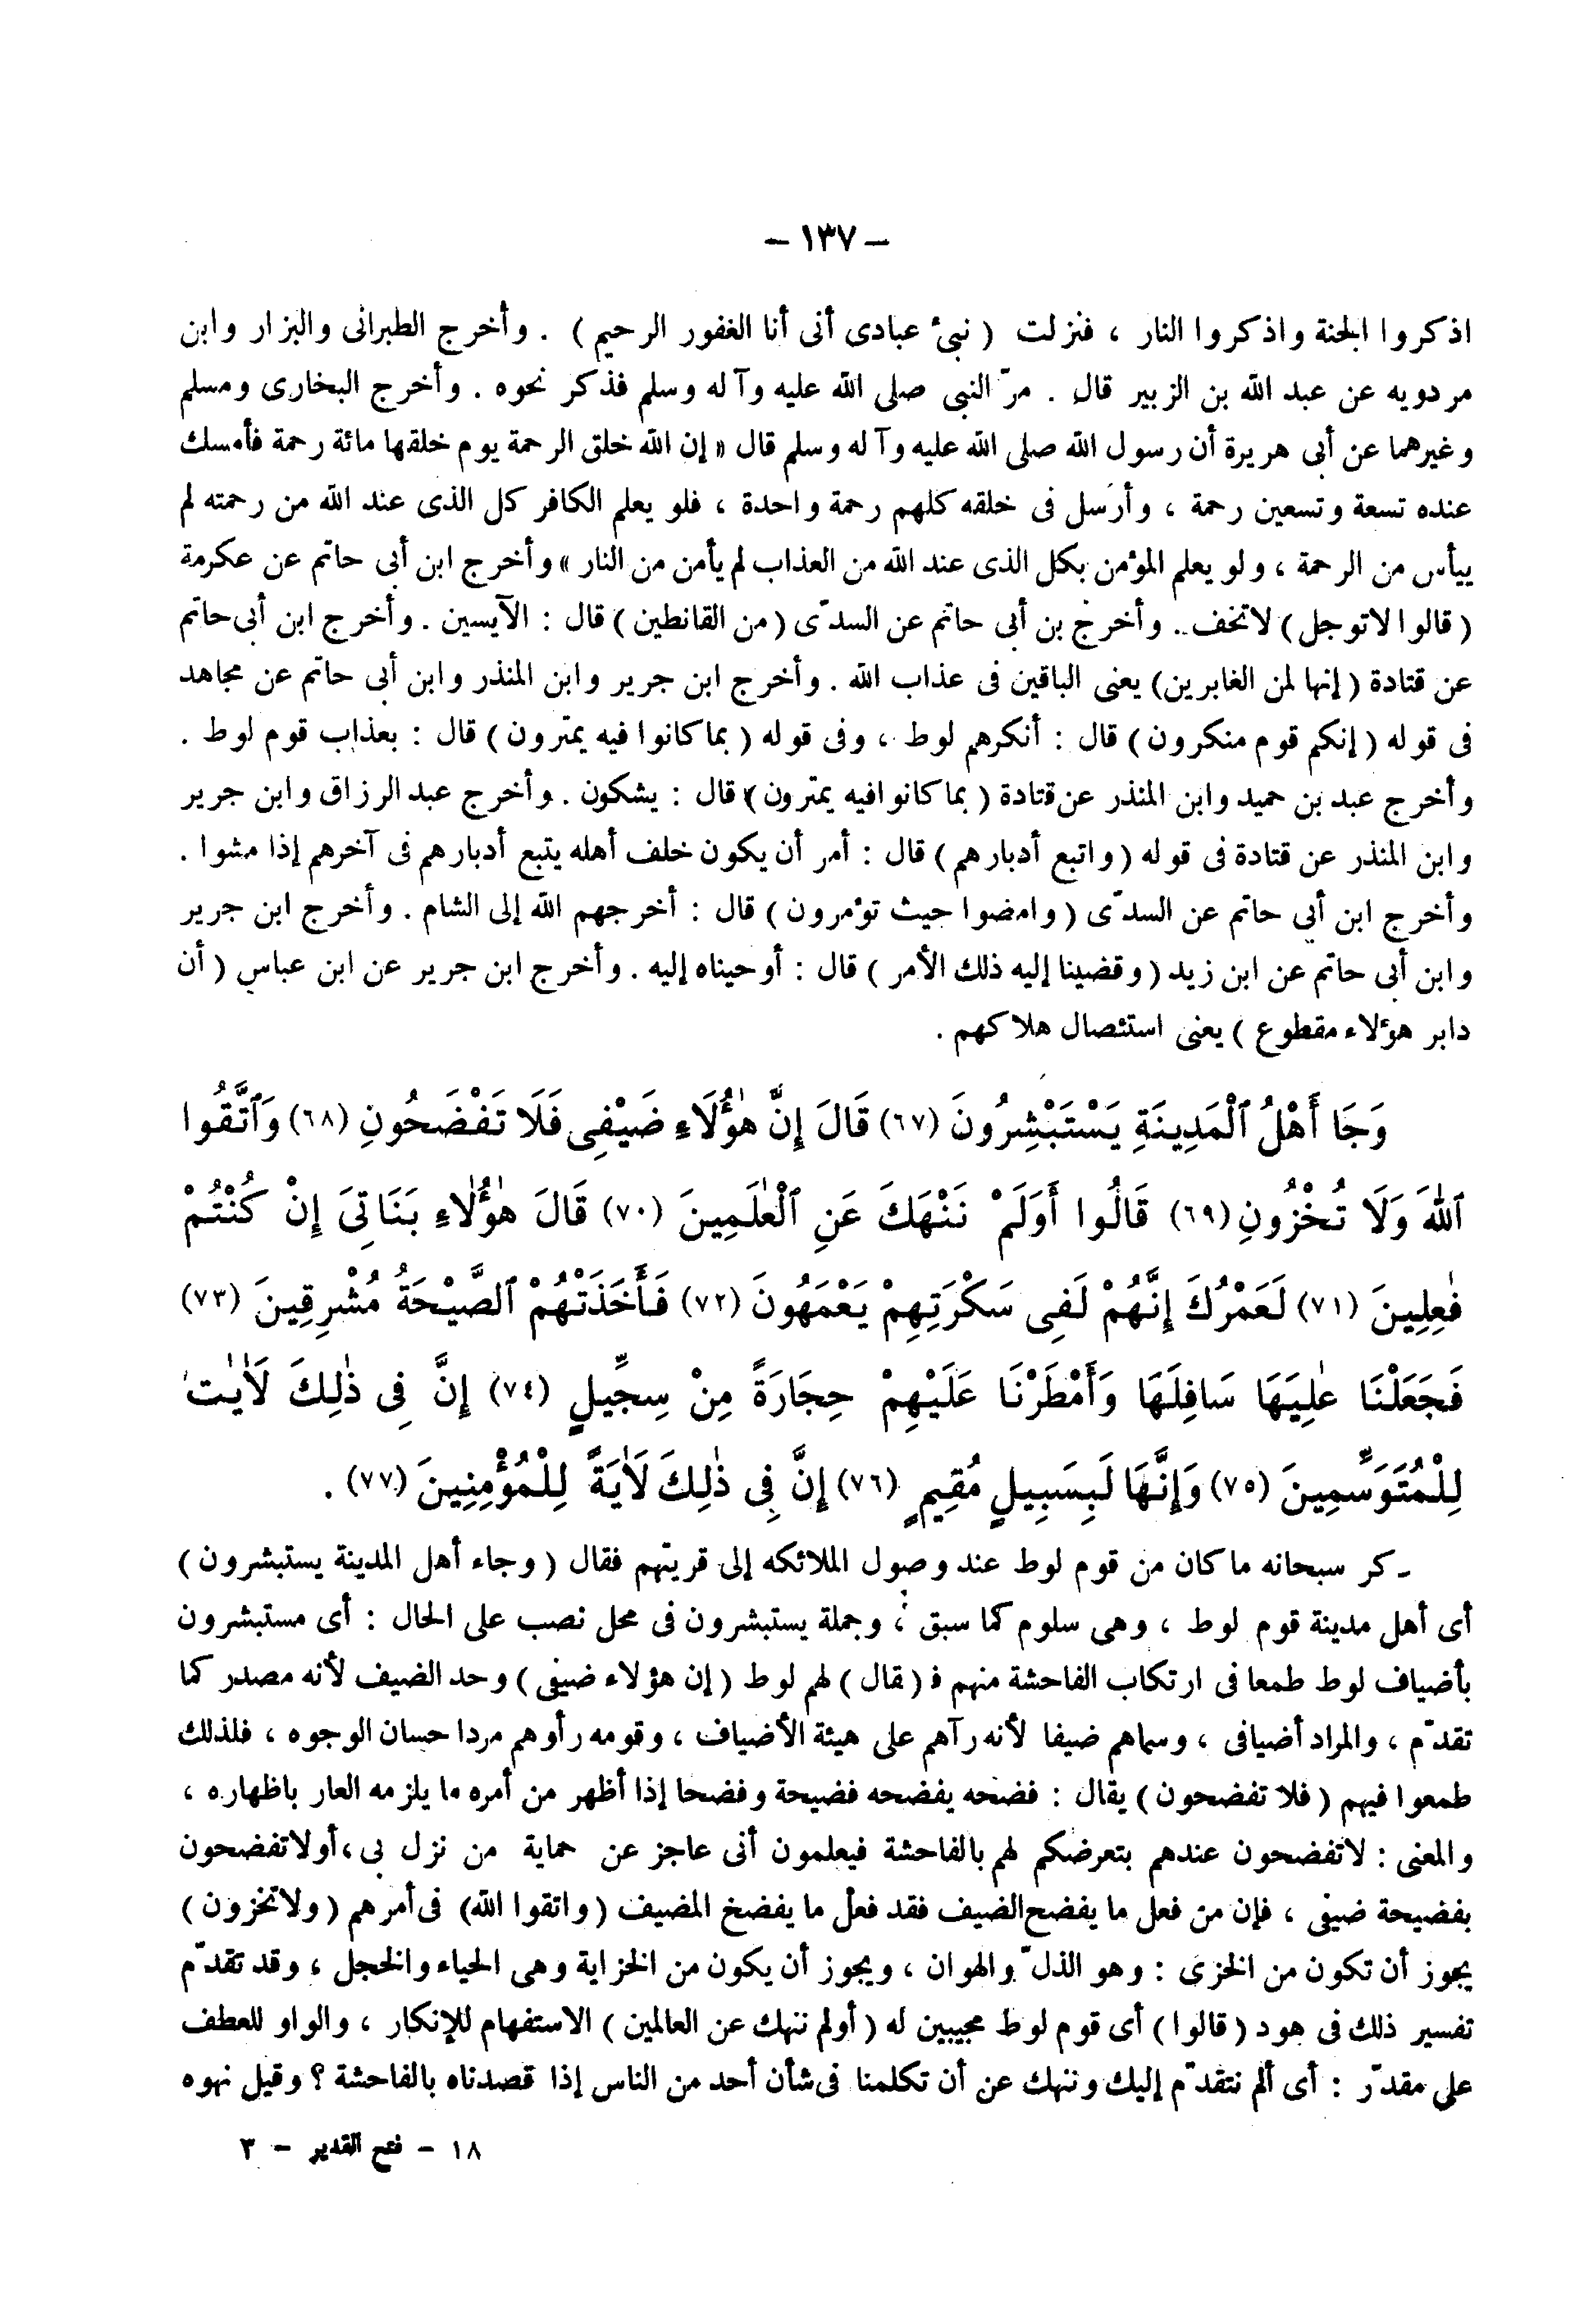 – ١٣٧ –
اذكروا الجنة واذكروا النار ، فنزلت ( نبئ عبادى أنى أنا الغفور الرحيم ) . وأخرج الطبرانى والبزار وابن
مردويه عن عبد الله بن الزبير قال . مرّ النبى صلى الله عليه وآله وسلم فذكر نحوه . وأخرج البخارى ومسلم
وغيرهما عن أبى هريرة أن رسول الله صلى الله عليه وآله وسلم قال « إن الله خلق الرحمة يوم خلقها مائة رحمة فأمسك
عنده تسعة وتسعين رحمة ، وأرسل فى خلقه كلهم رحمة واحدة ، فلو يعلم الكافر كل الذى عند الله من رحمته لم
ييأس من الرحمة ، ولو يعلم المؤمن بكل الذى عند الله من العذاب لم يأمن من النار » وأخرج ابن أبى حاتم عن عكرمة
( قالوا لاتوجل ) لاتخف . وأخرج بن أبى حاتم عن السدّى ( من القانطين ) قال : الآيسين . وأخرج ابن أبى حاتم
عن قتادة ( إنها لمن الغابرين ) يعنى الباقين فى عذاب الله . وأخرج ابن جرير وابن المنذر وابن أبى حاتم عن مجاهد
فى قوله ( إنكم قوم منكرون ) قال : أنكرهم لوط ، وفى قوله ( بما كانوا فيه يمترون ) قال : بعذاب قوم لوط .
وأخرج عبد بن حميد وابن المنذر عن قتادة ( بما كانوا فيه يمترون ) قال : يشكون . وأخرج عبد الرزاق وابن جرير
وابن المنذر عن قتادة فى قوله ( واتبع أدبارهم ) قال : أمر أن يكون خلف أهله يتبع أدبارهم فى آخرهم إذا مشوا .
وأخرج ابن أبى حاتم عن السدّى ( وامضوا حيث تؤمرون ) قال : أخرجهم الله إلى الشام . وأخرج ابن جرير
وابن أبى حاتم عن ابن زيد ( وقضينا إليه ذلك الأمر ) قال : أوحيناه إليه . وأخرج ابن جرير عن ابن عباس ( أن
دابر هؤلاء مقطوع ) يعنى استئصال هلاكهم .
وَجَا أَهْلُ ٱلْمَدِينَةِ يَسْتَبْشِرُونَ (٦٧) قَالَ إِنَّ هٰؤُلَاءِ ضَيْفِى فَلَا تَفْضَحُونِ (٦٨) وَٱتَّقُوا
ٱللّٰهَ وَلَا تُخْزُونِ (٦٩) قَالُوا أَوَلَمْ نَنْهَكَ عَنِ ٱلْعٰلَمِينَ (٧٠) قَالَ هٰؤُلَاءِ بَنَاتِىَ إِنْ كُنْتُمْ
فٰعِلِينَ (٧١) لَعَمْرُكَ إِنَّهُمْ لَفِى سَكْرَتِهِمْ يَعْمَهُونَ (٧٢) فَأَخَذَتْهُمْ ٱلصَّيْحَةُ مُشْرِقِينَ (٧٣)
فَجَعَلْنَا عٰلِيَهَا سَافِلَهَا وَأَمْطَرْنَا عَلَيْهِمْ حِجَارَةً مِنْ سِجِّيلٍ (٧٤) إِنَّ فِى ذٰلِكَ لَأٰيٰت
لِلْمُتَوَسِّمِينَ (٧٥) وَإِنَّهَا لَبِسَبِيلٍ مُقِيمٍ (٧٦) إِنَّ فِى ذٰلِكَ لَأٰيَةً لِلْمُؤْمِنِينَ (٧٧) .
كر سبحانه ما كان من قوم لوط عند وصول الملائكه إلى قريتهم فقال ( وجاء أهل المدينة يستبشرون )
أى أهل مدينة قوم لوط ، وهى سلوم كما سبق ، وجملة يستبشرون فى محل نصب على الحال : أى مستبشرون
بأضياف لوط طمعا فى ارتكاب الفاحشة منهم فـ ( قال ) لهم لوط ( إن هؤلاء ضيفى ) وحد الضيف لأنه مصدر كما
تقدّم ، والمراد أضيافى ، وسماهم ضيفا لأنه رآهم على هيئة الأضياف ، وقومه رأوهم مردا حسان الوجوه ، فلذلك
طمعوا فيهم ( فلا تفضحون ) يقال : فضحه يفضحه فضيحة وفضحا إذا أظهر من أمره ما يلزمه العار باظهاره ،
والمعنى : لاتفضحون عندهم بتعرضكم لهم بالفاحشة فيعلمون أنى عاجز عن حماية من نزل بى ، أولاتفضحون
بفضيحة ضيفى ، فإن من فعل ما يفضح الضيف فقد فعل ما يفضخ المضيف ( واتقوا الله ) فى أمرهم ( ولاتخزون )
يجوز أن تكون من الخزى : وهو الذلّ والهوان ، ويجوز أن يكون من الخزاية وهى الحياء والخجل ، وقد تقدّم
تفسير ذلك فى هود ( قالوا ) أى قوم لوط مجيبين له ( أولم ننهك عن العالمين ) الاستفهام للإنكار ، والواو للعطف
على مقدّر : أى ألم نتقدّم إليك وننهك عن أن تكلمنا فى شأن أحد من الناس إذا قصدناه بالفاحشة ؟ وقيل نهوه
١٨ – فتح القدير – ٣